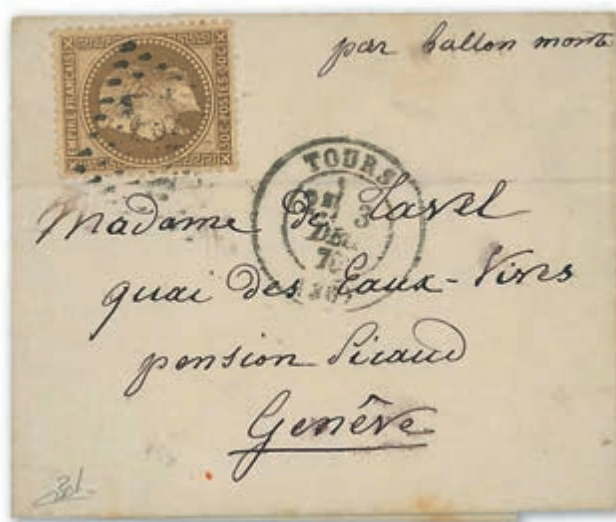 par ballon monté
EMPIRE FRANÇAIS
30C POSTES 30C
TOURS
3
DEC.
70
Madame de Lavel
quai des Eaux-Vives
pension Picaud
Genêve